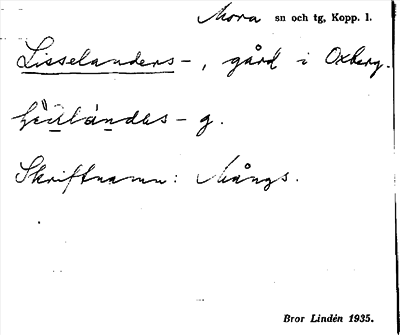 Mora sn och tg, Kopp. l.
Lisselanders-, gård i Oxberg.
g.
Skriftnamn: Mångs.
Bror Lindén 1935.